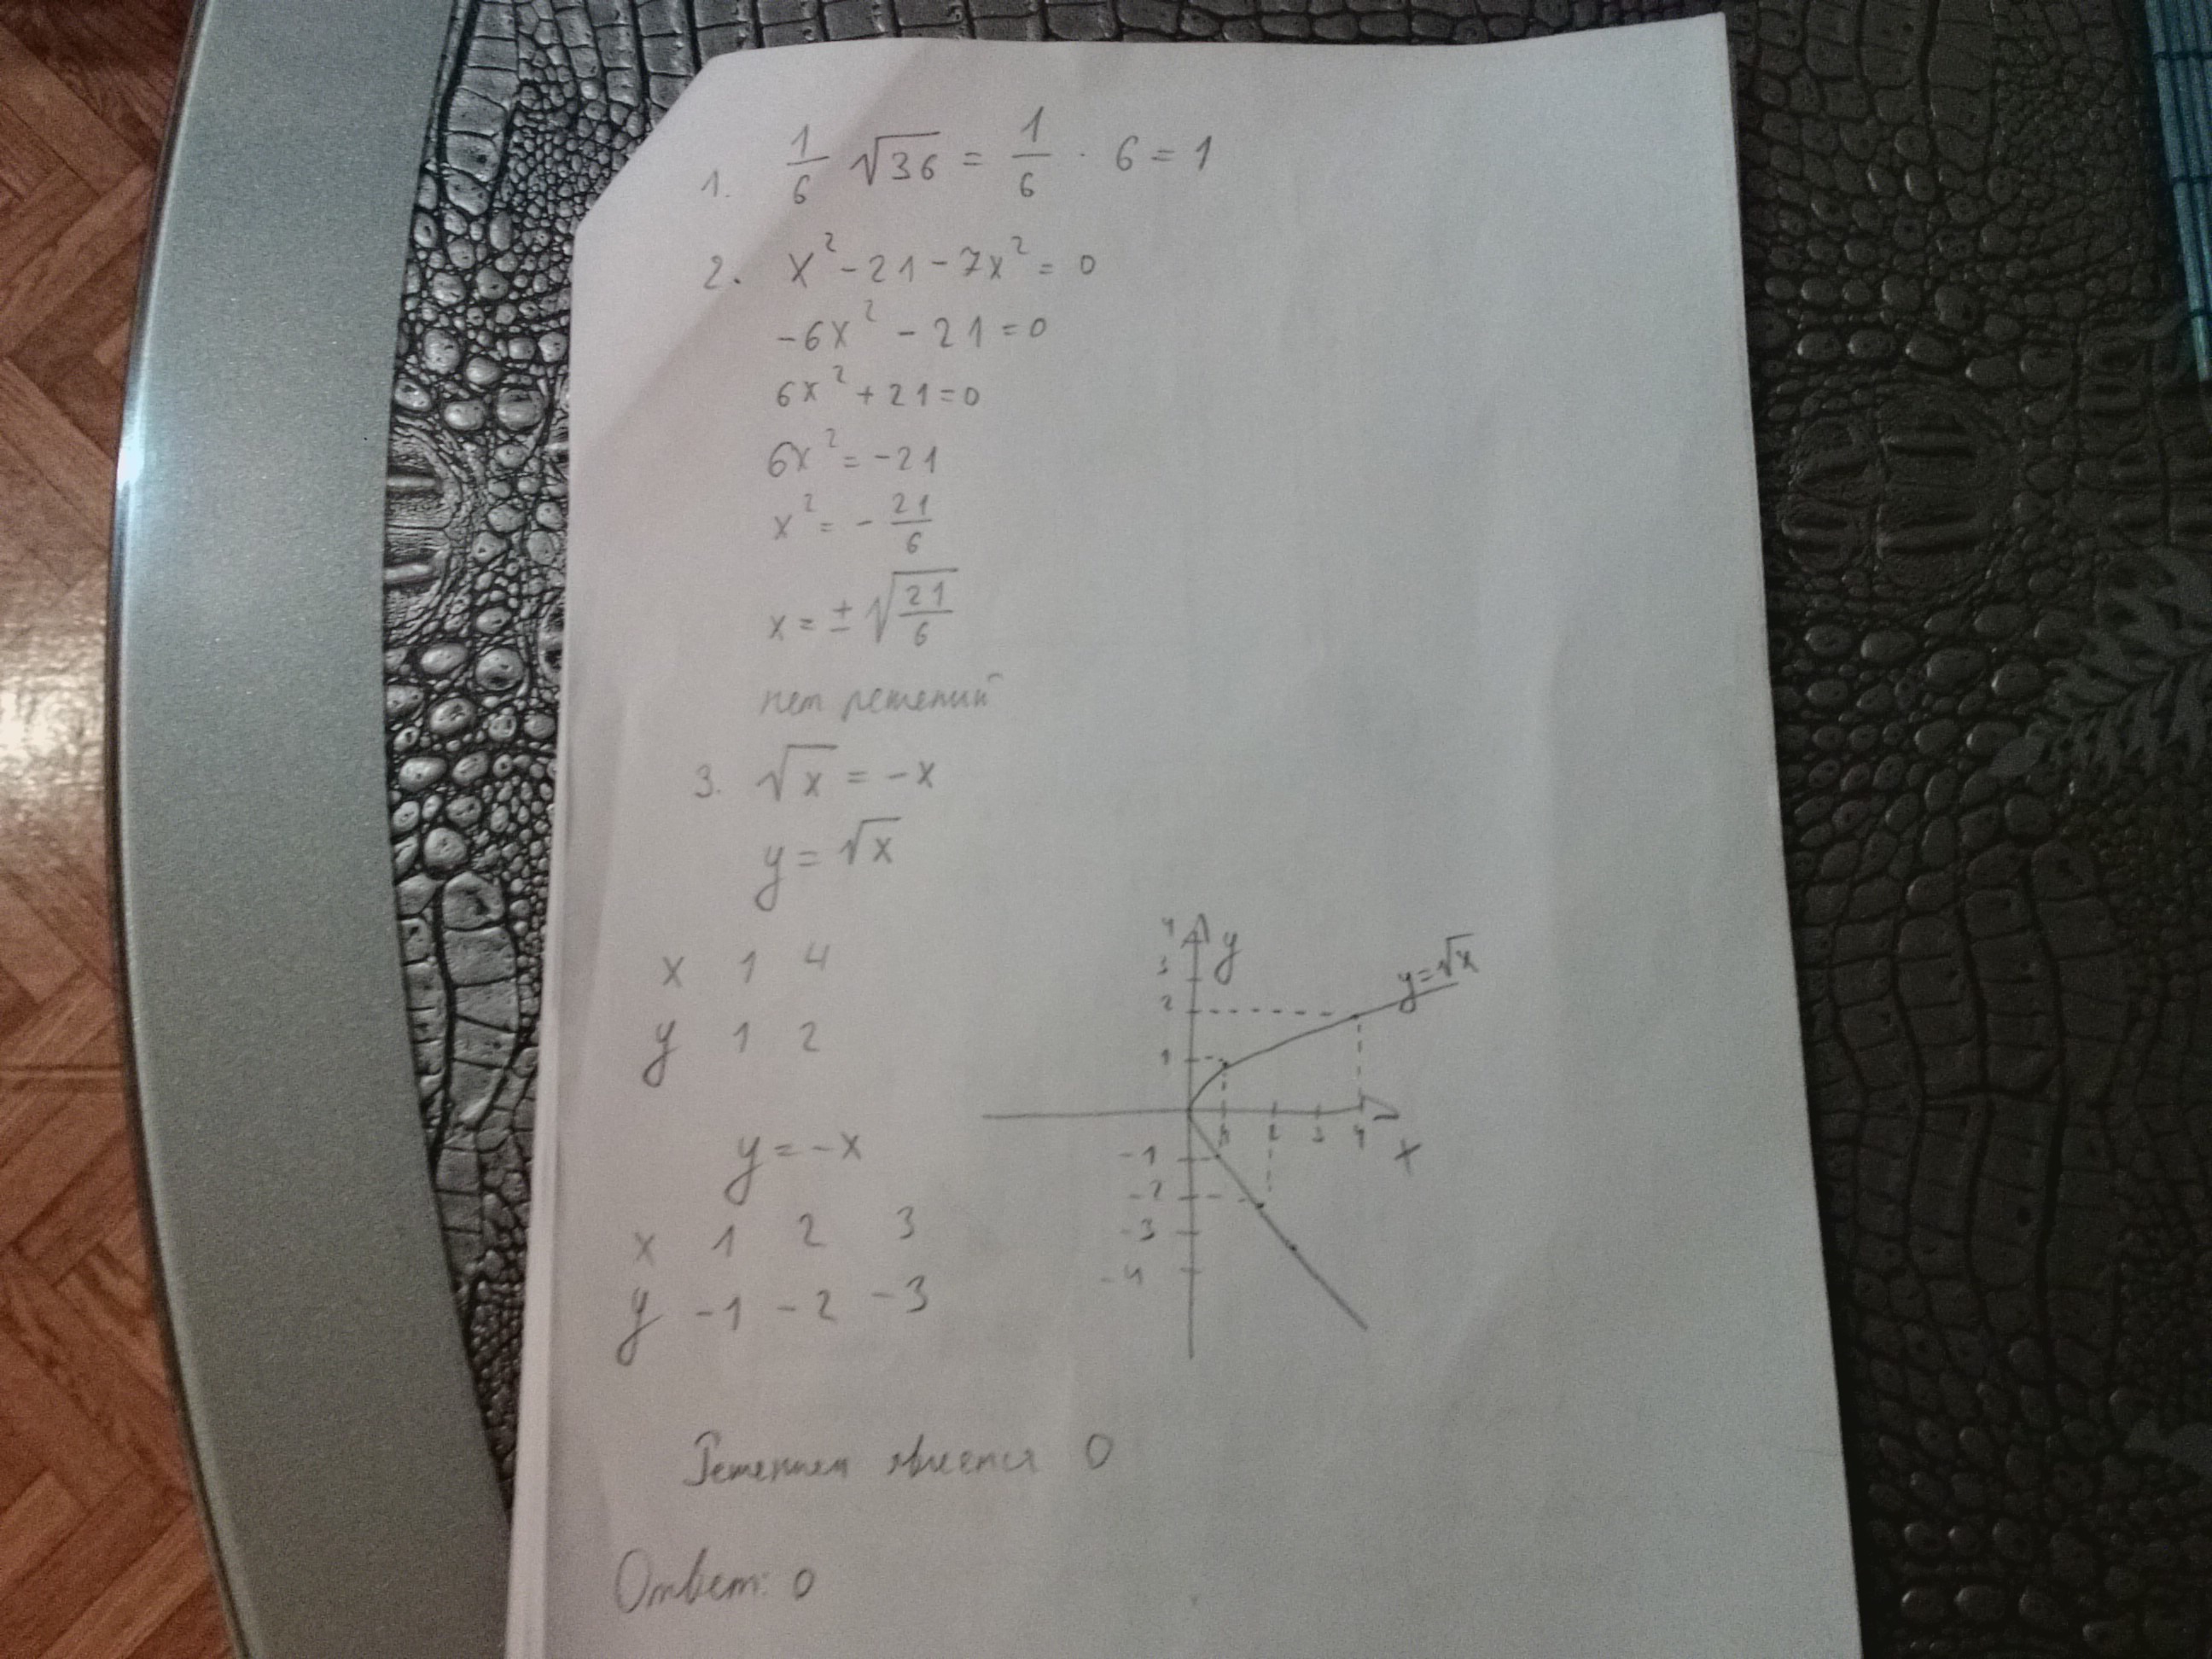 1. 1/6 √36 = 1/6 · 6 = 1
2. x² - 21 - 7x² = 0
-6x² - 21 = 0
6x² + 21 = 0
6x² = -21
x² = - 21/6
x = ± √(21/6)
нет решений
3. √x = -x
y = √x
x 1 4
y 1 2
y = -x
x 1 2 3
y -1 -2 -3
y
4
3
2
1
y = √x
1 2 3 4
x
-1
-2
-3
-4
Решением является 0
Ответ: 0